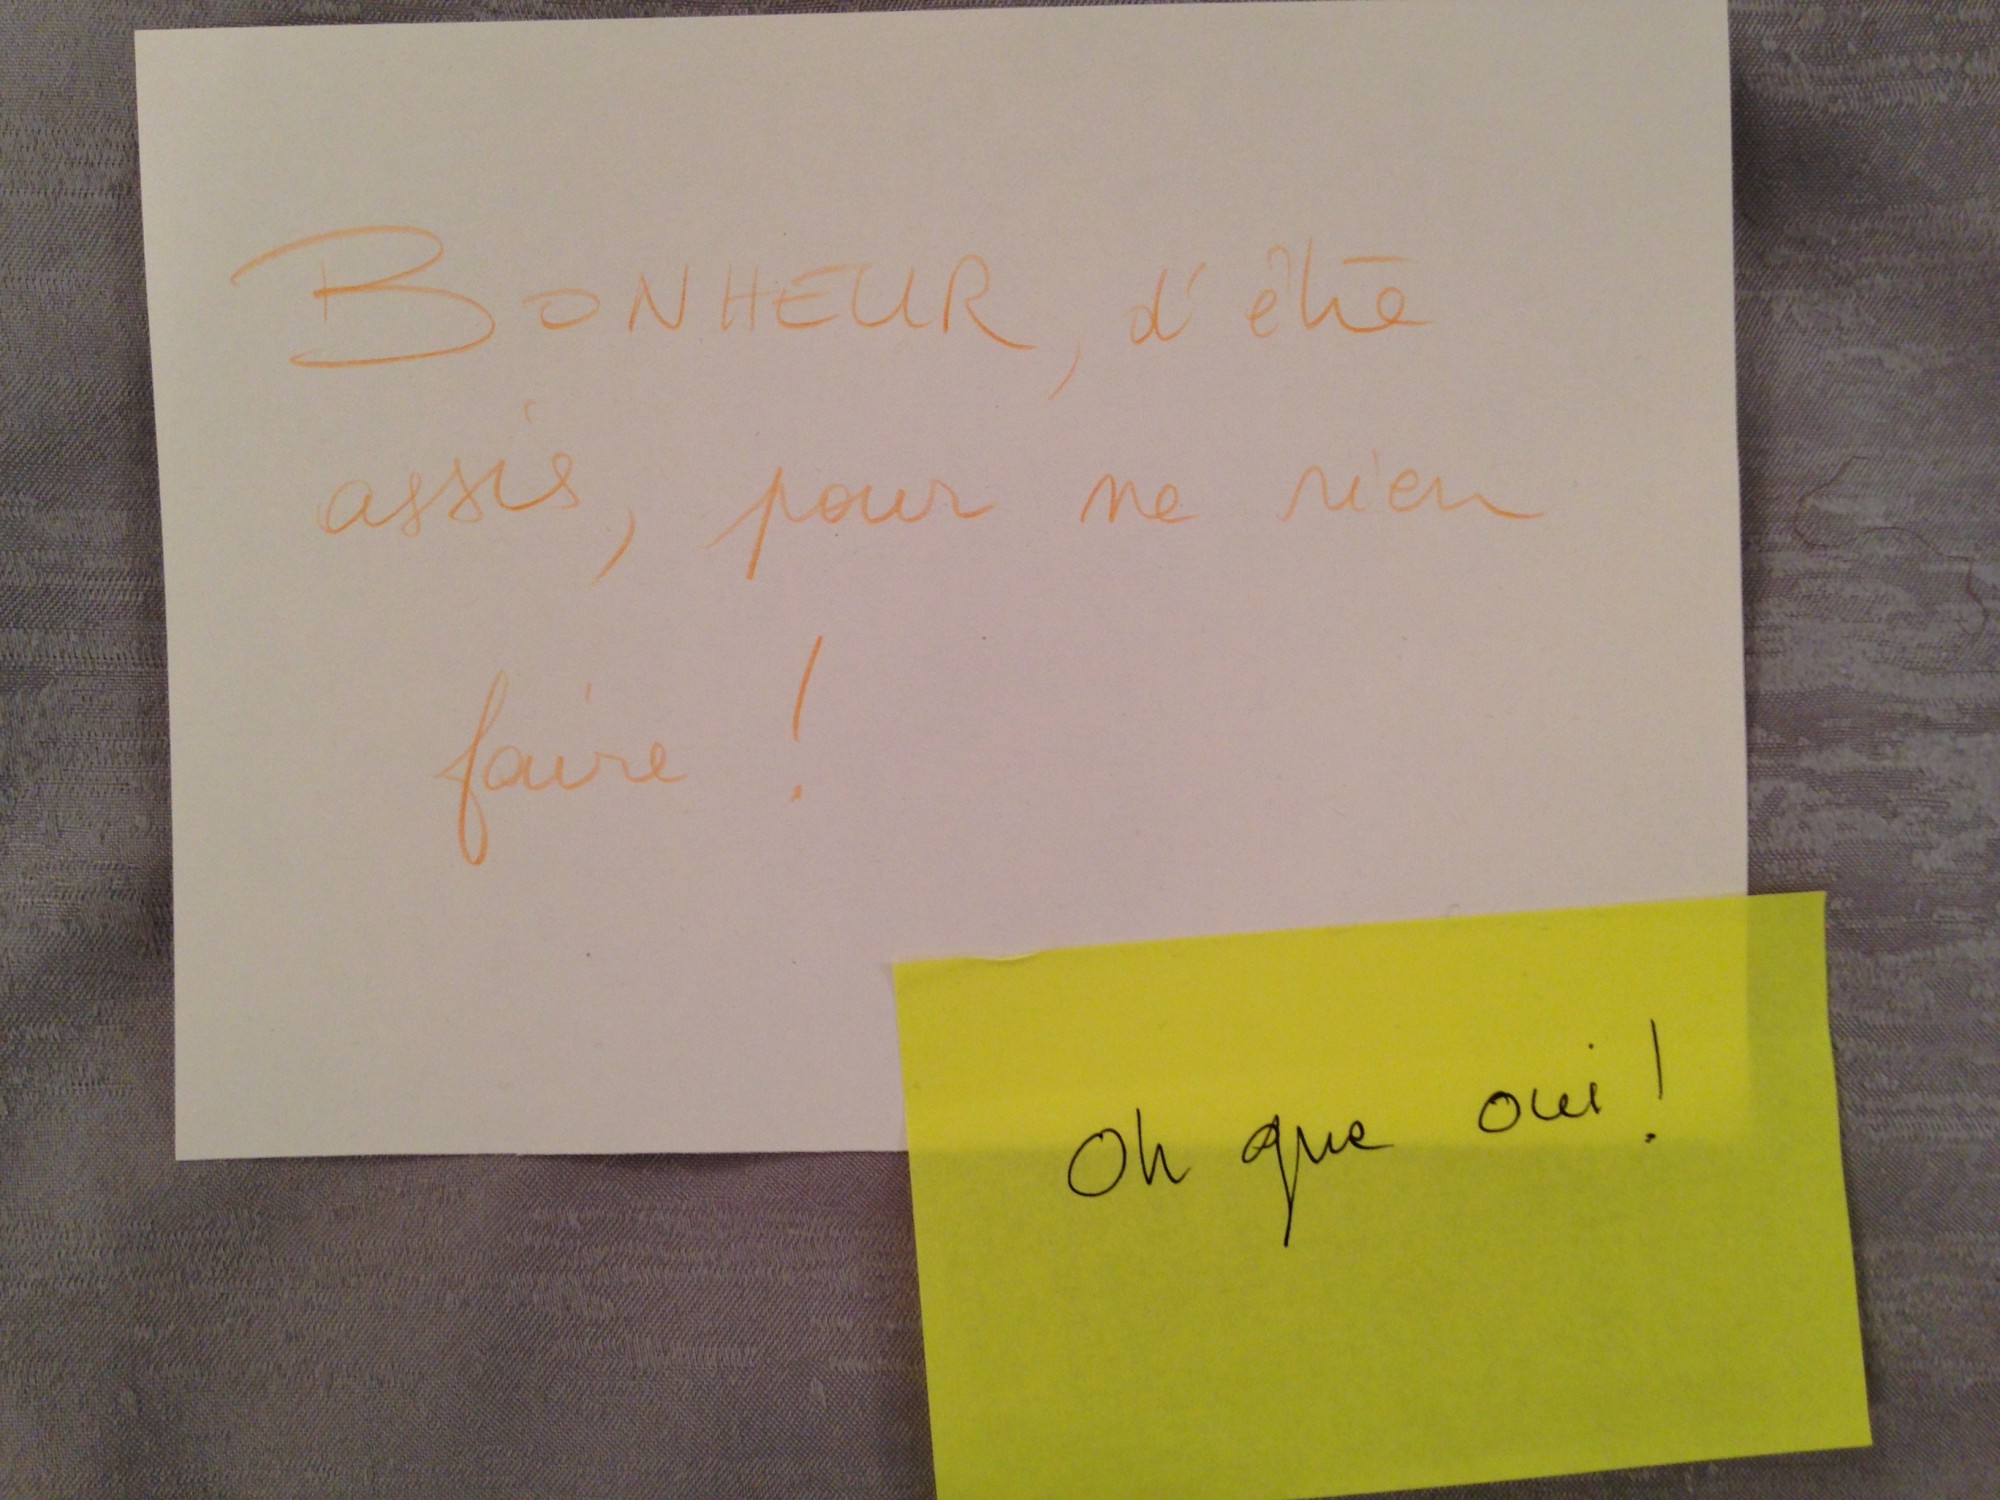 BONHEUR, d'être
assis, pour ne rien
faire !
Oh que oui !